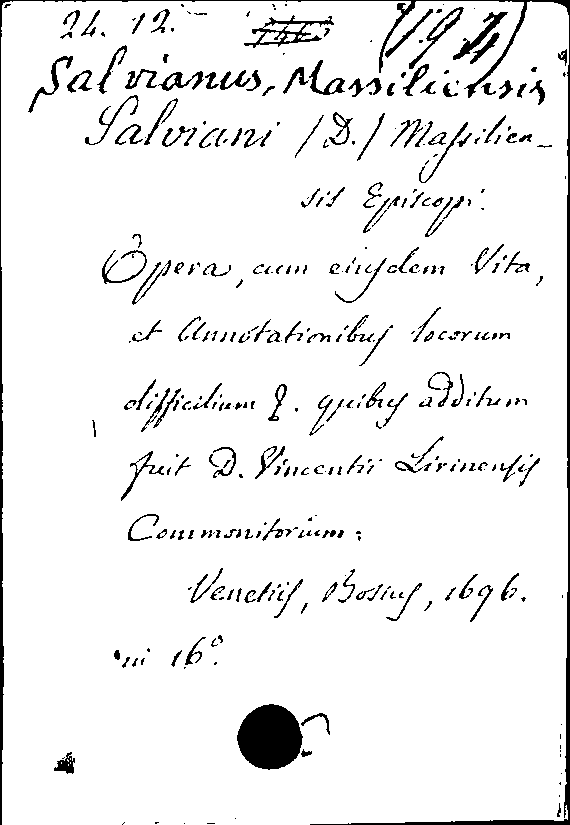 24. 12.
(194)
Salvianus, Massiliensis
Salviani /D./ Massilien-
sis Episcopi.
Opera, cum eiusdem Vita,
et Annotationibus locorum
difficilium &. quibus additum
fuit D. Vincentii Lirinensis
Commonitorium:
Venetiis, Bosius, 1696.
in 16°.